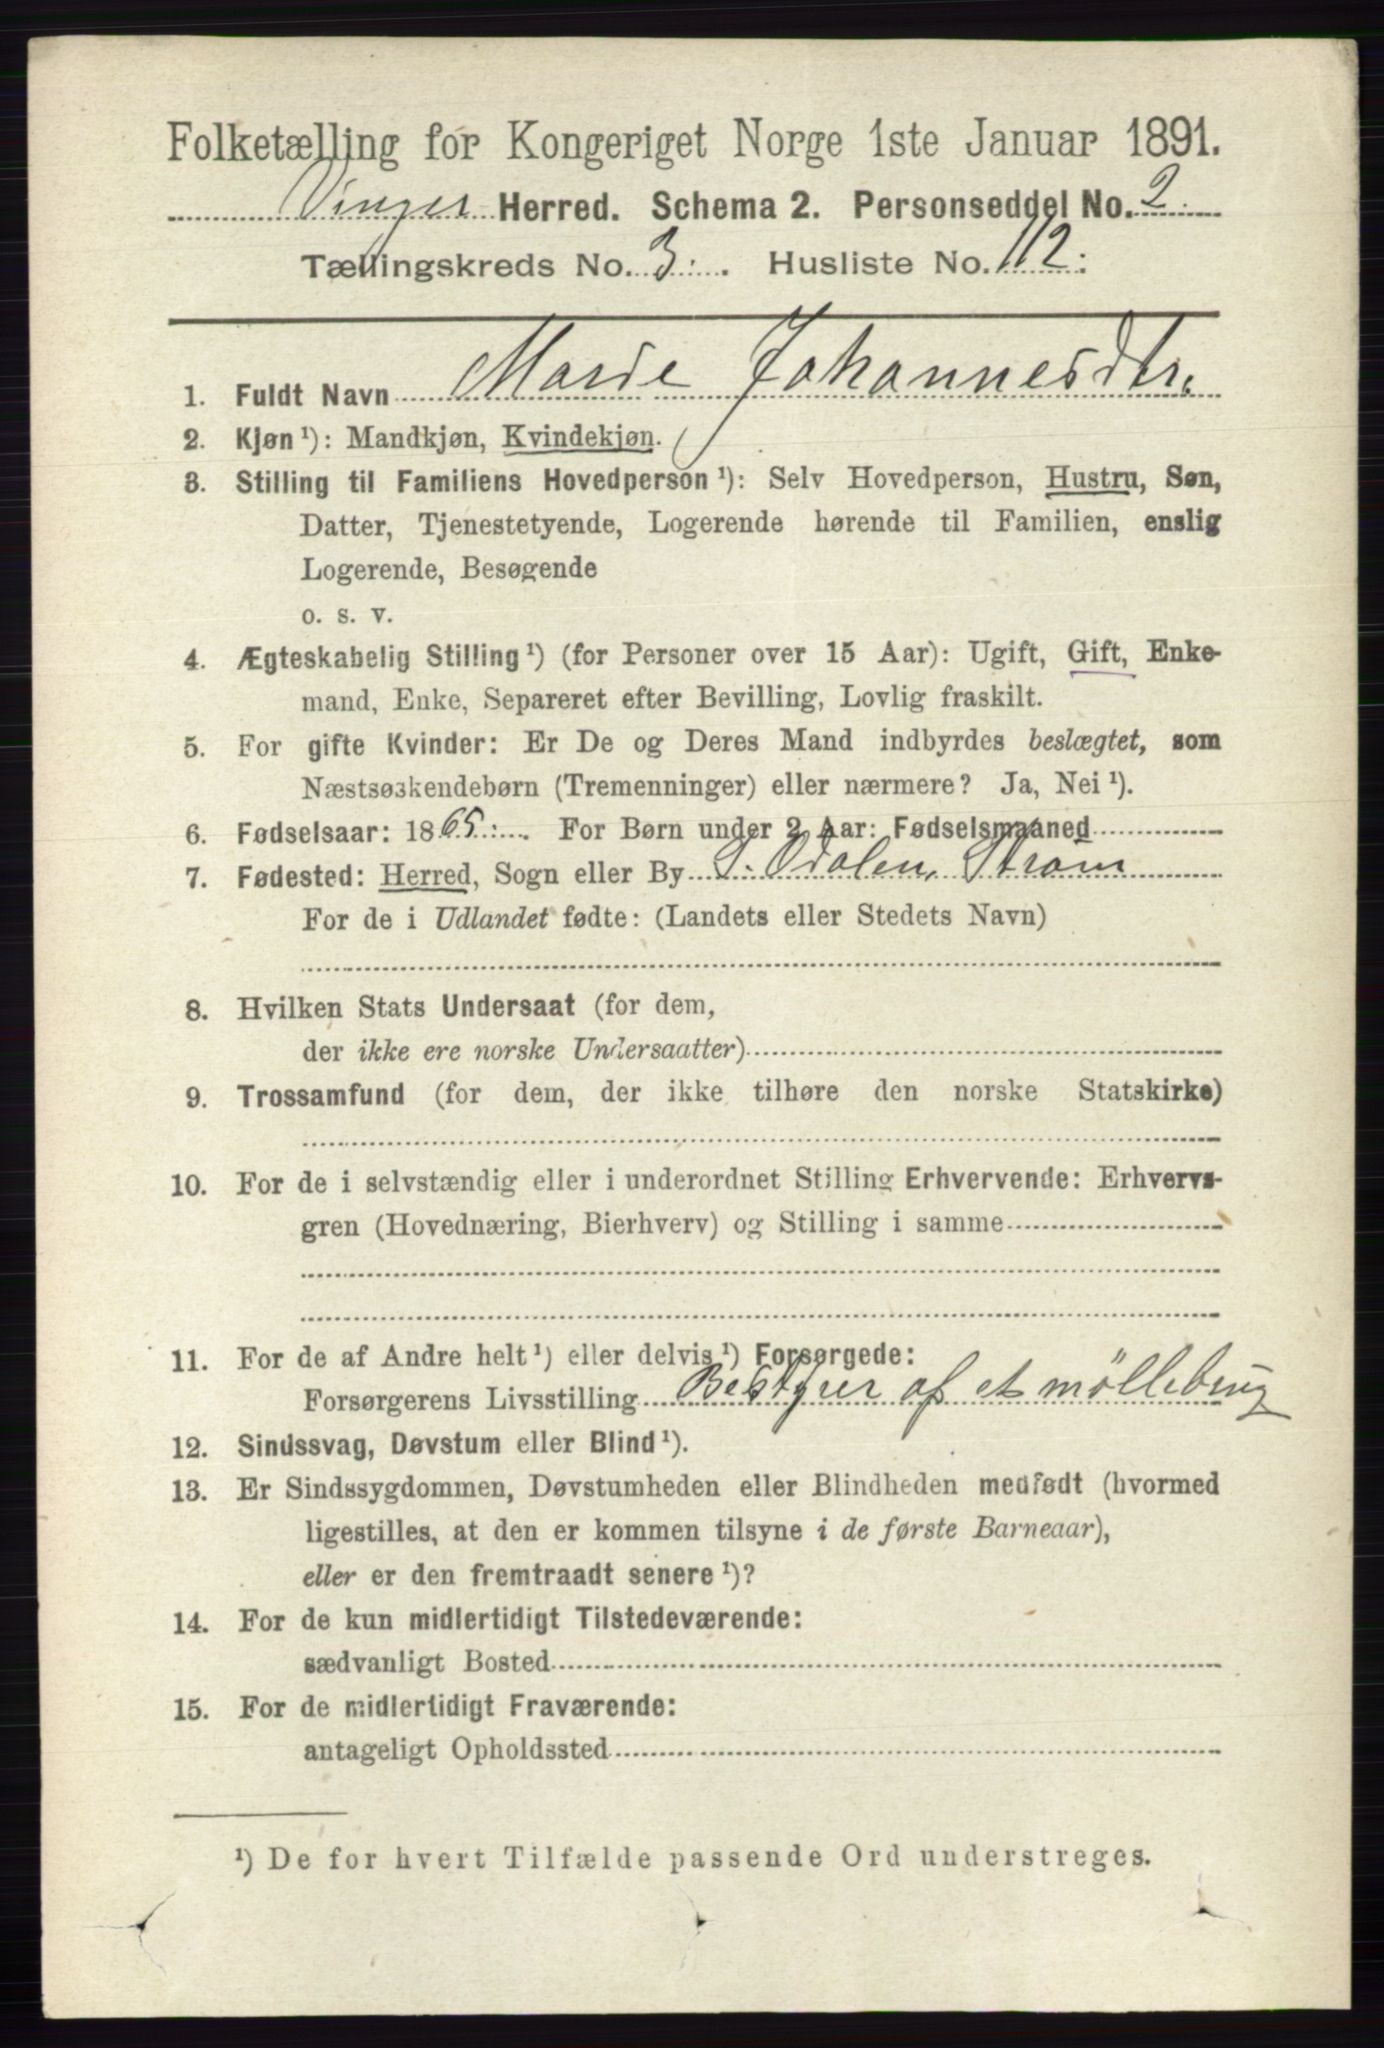 Folketælling for Kongeriget Norge 1ste Januar 1891.
Vinger Herred. Schema 2. Personseddel No. 2.
Tællingskreds No. 3. Husliste No. 112.
1. Fuldt Navn Marie Johannesdtr.
2. Kjøn ¹): Mandkjøn, Kvindekjøn.
3. Stilling til Familiens Hovedperson ¹): Selv Hovedperson, Hustru, Søn,
Datter, Tjenestetyende, Logerende hørende til Familien, enslig
Logerende, Besøgende
o. s. v.
4. Ægteskabelig Stilling ¹) (for Personer over 15 Aar): Ugift, Gift, Enke-
mand, Enke, Separeret efter Bevilling, Lovlig fraskilt.
5. For gifte Kvinder: Er De og Deres Mand indbyrdes beslægtet, som
Næstsøskendebørn (Tremenninger) eller nærmere? Ja, Nei ¹).
6. Fødselsaar: 1865. For Børn under 2 Aar: Fødselsmaaned
7. Fødested: Herred, Sogn eller By S. Odalen, Strøm
For de i Udlandet fødte: (Landets eller Stedets Navn)
8. Hvilken Stats Undersaat (for dem,
der ikke ere norske Undersaatter)
9. Trossamfund (for dem, der ikke tilhøre den norske Statskirke)
10. For de i selvstændig eller i underordnet Stilling Erhvervende: Erhvervs-
gren (Hovednæring, Bierhverv) og Stilling i samme
11. For de af Andre helt ¹) eller delvis ¹) Forsørgede:
Forsørgerens Livsstilling Bestyrer af et møllebrug
12. Sindssvag, Døvstum eller Blind ¹).
13. Er Sindssygdommen, Døvstumheden eller Blindheden medfødt (hvormed
ligestilles, at den er kommen tilsyne i de første Barneaar),
eller er den fremtraadt senere ¹)?
14. For de kun midlertidigt Tilstedeværende:
sædvanligt Bosted
15. For de midlertidigt Fraværende:
antageligt Opholdssted
¹) De for hvert Tilfælde passende Ord understreges.